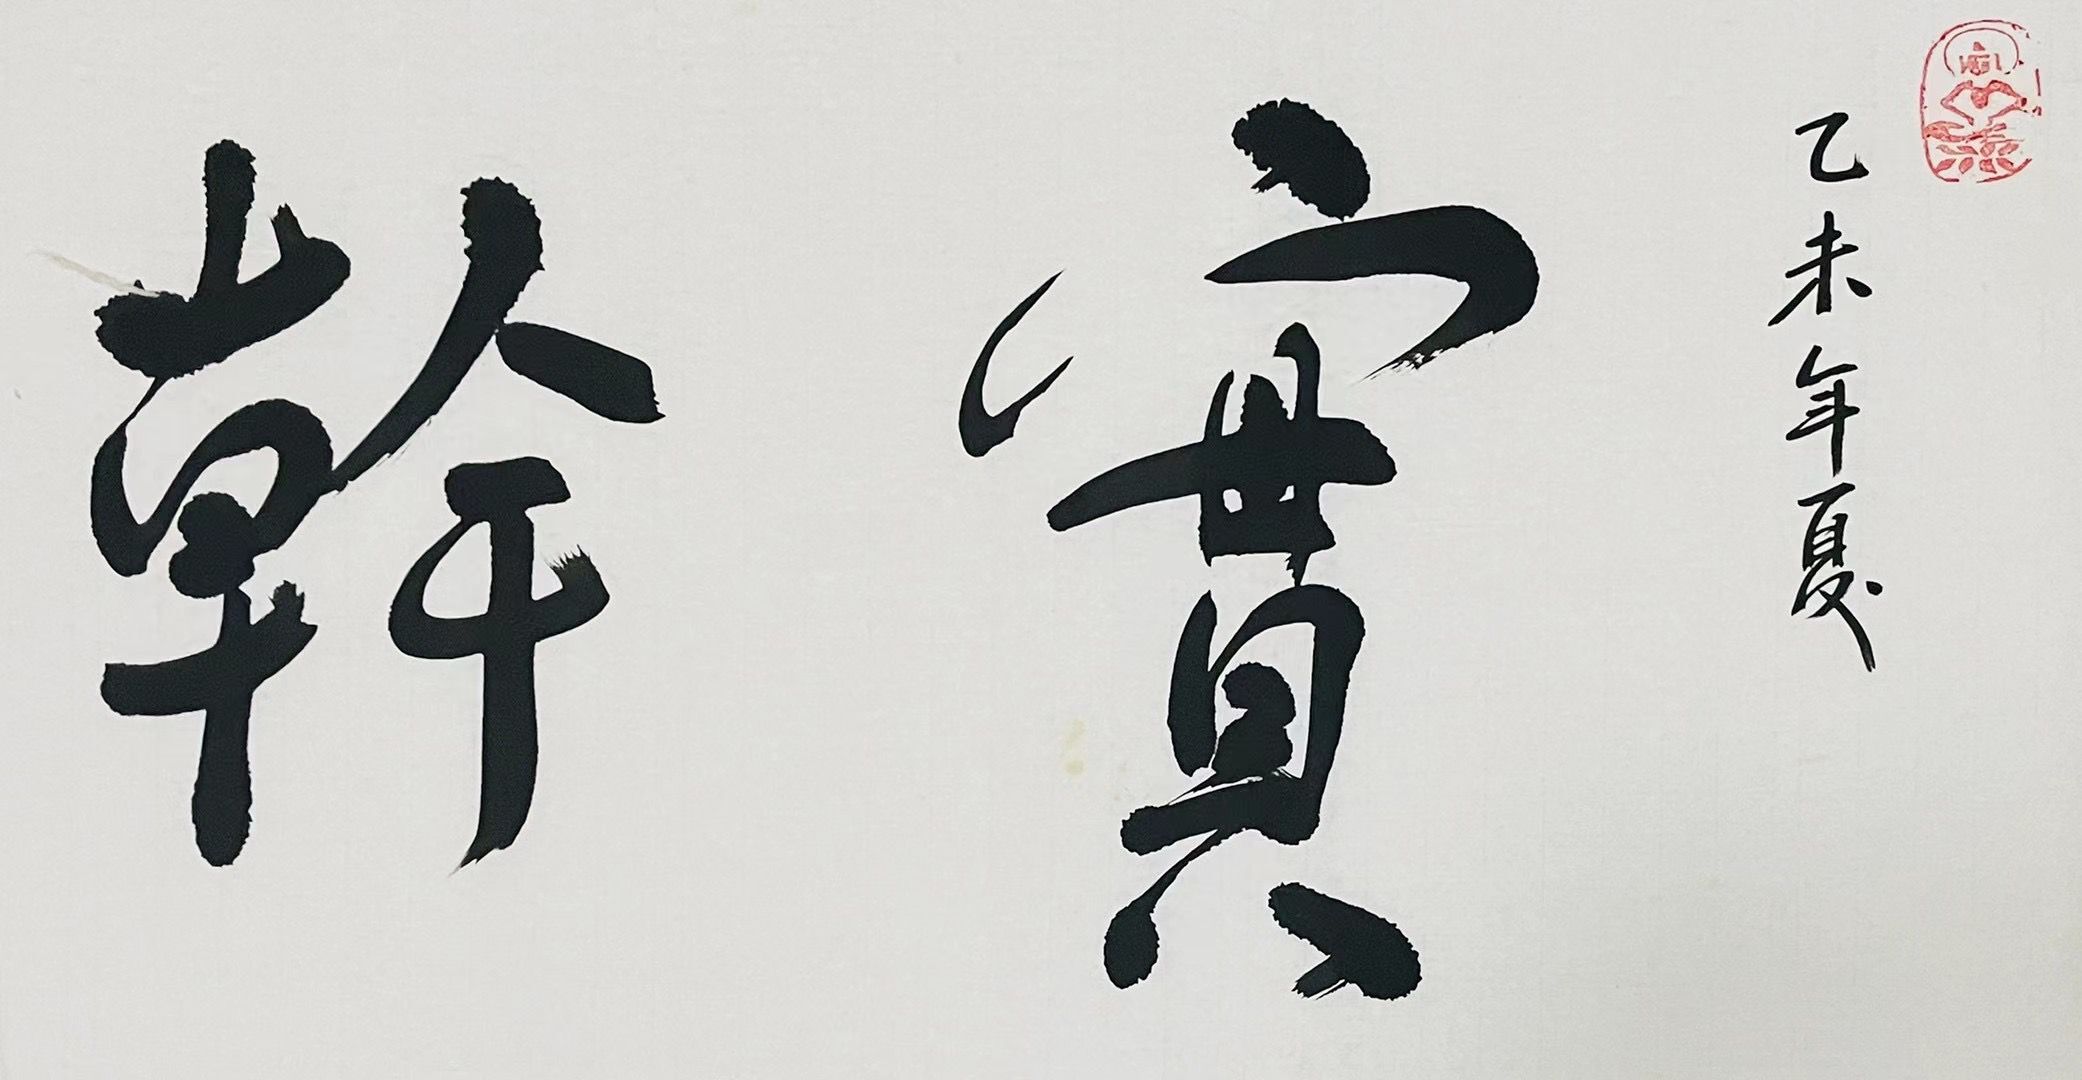 乙未年夏
實幹